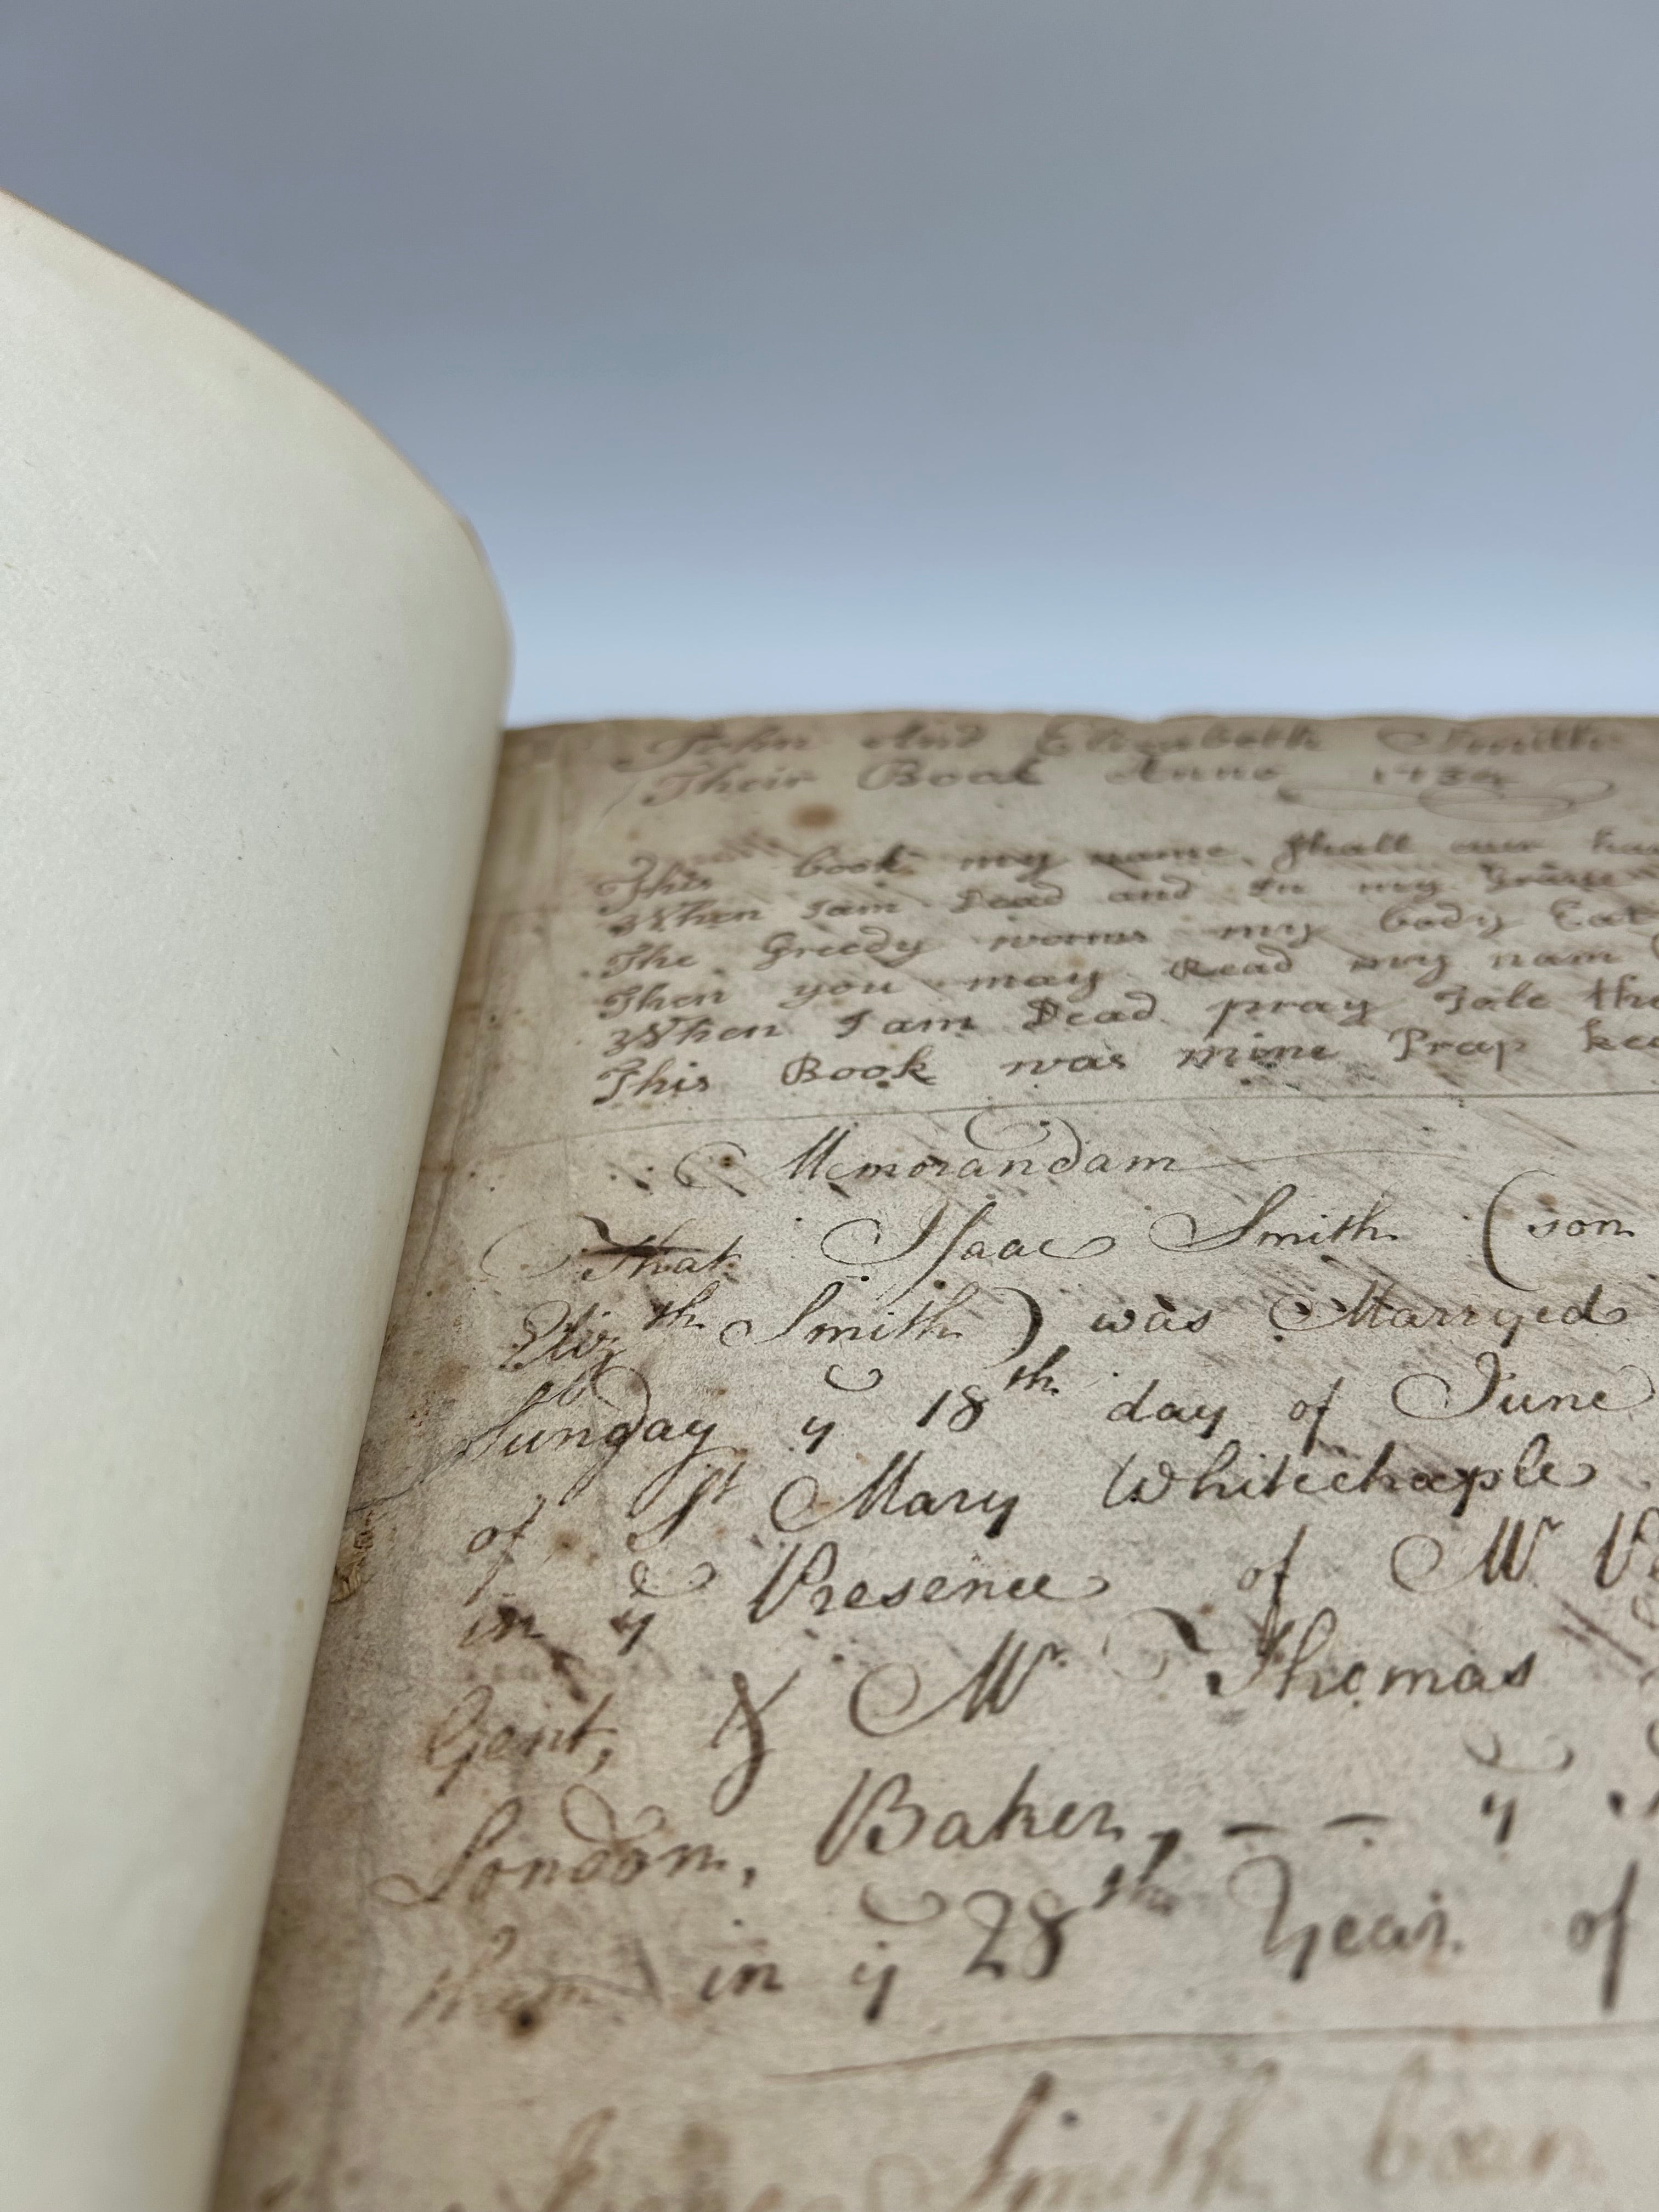 John And Elizabeth Smith
Their Book Anno
This book my name shall ever
When I am Dead and In my Grave
The Greedy worms my body Eat
Then you may Read my nam
When I am Dead pray Tale the
This Book was mine Prap kee
Memorandam
That Isaac Smith (son
Eliz th Smith) was Marryed
Sunday ye 18th day of June
of St Mary Whitechaple
in ye Presence of Mr
Gent, & Mr Thomas
London, Baker, -- ye
them in ye 28th Year of
Smith born